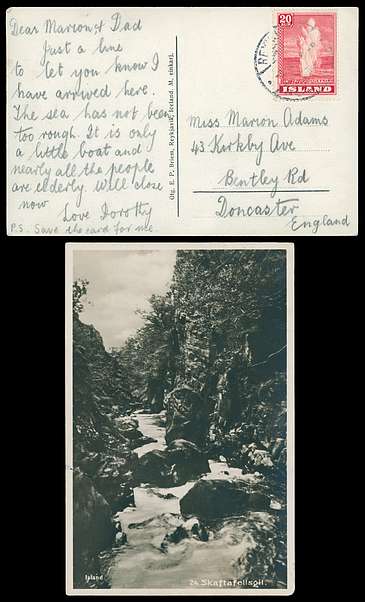 Dear Marion & Dad
Just a line
to let you know I
have arrived here.
The sea has not been
too rough. It is only
a little boat and
nearly all the people
are elderly. Will close
now
Love Dorothy
P.S. Save the card for me.
Útg. E. P. Briem, Reykjavík, Iceland. M. einkarj.
20
ISLAND
Miss Marion Adams
43 Kirkby Ave
Bentley Rd
Doncaster
England
Island
24 Skaftafellsgil.